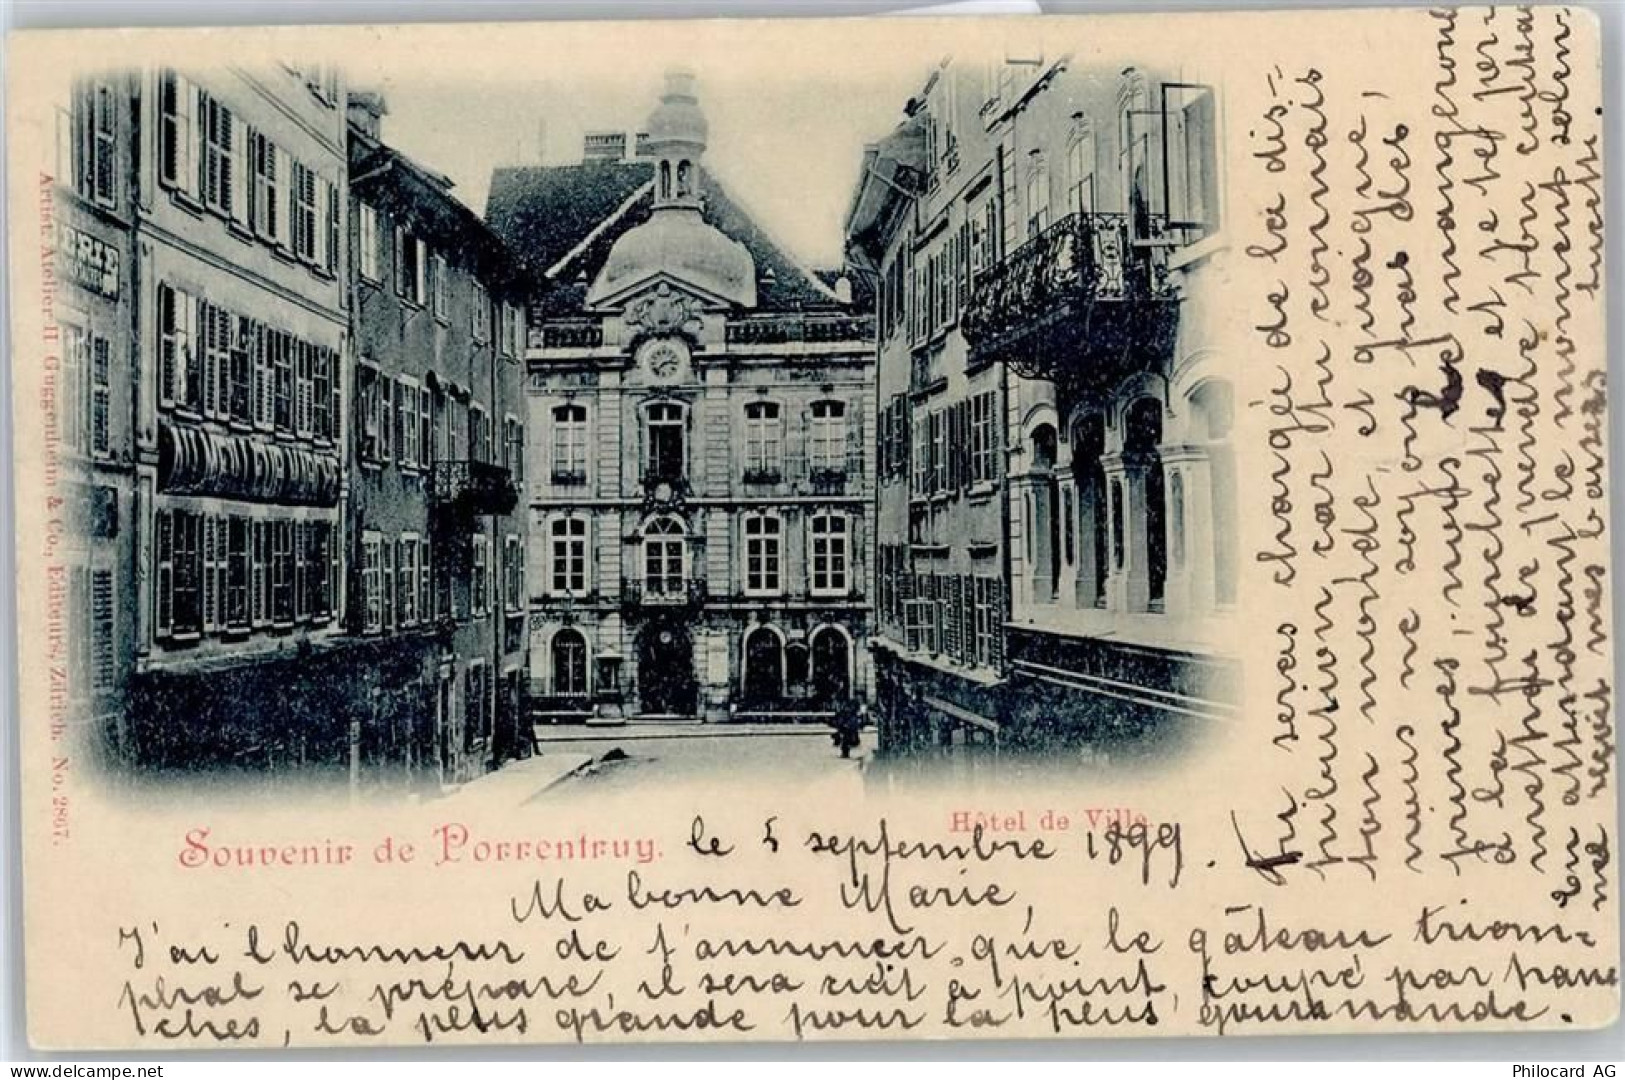 Artist. Atelier H. Guggenheim & Co., Editeurs, Zürich. No. 2897.
Hôtel de Ville.
Souvenir de Porrentruy.
le 5 septembre 1899.
Ma bonne Marie,
J'ai l'honneur de t'annoncer que le gâteau triom=
phal se prépare, il sera cuit à point, coupé par tran
ches, la plus grande pour la plus gourmande.
Tu seras chargée de la dis=
tribution car tu connais
ton monde, et quoique,
nous ne soyons pas des
princes, nous le mangerons
à la fourchette et je te per-
mettrai de prendre ton couteau
En attendant le moment solen-
nel reçoit mes baisers sucrés.
delcampe.net
Philocard AG